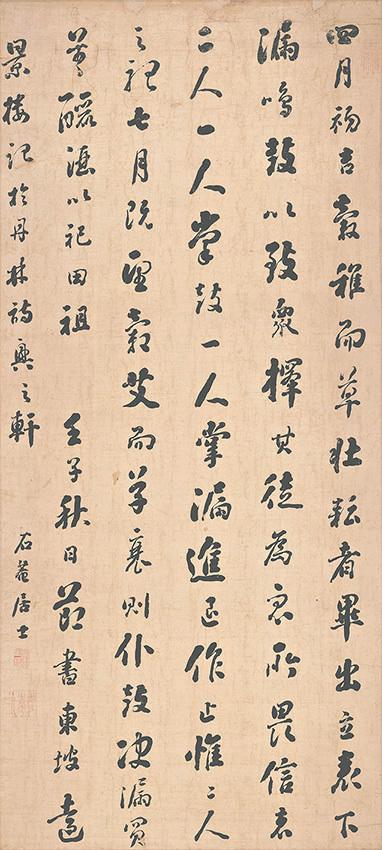 四月初吉穀稚而草壯耘者畢出立表下
漏鳴鼓以致眾擇其徒為眾所畏信者
二人一人掌鼓一人掌漏進退作止惟二人
之聽七月既望穀艾而草衰則仆鼓决漏買
羊酒以祀田祖 壬子秋日節書東坡遠
景樓記於丹林詩興之軒
石菴居士